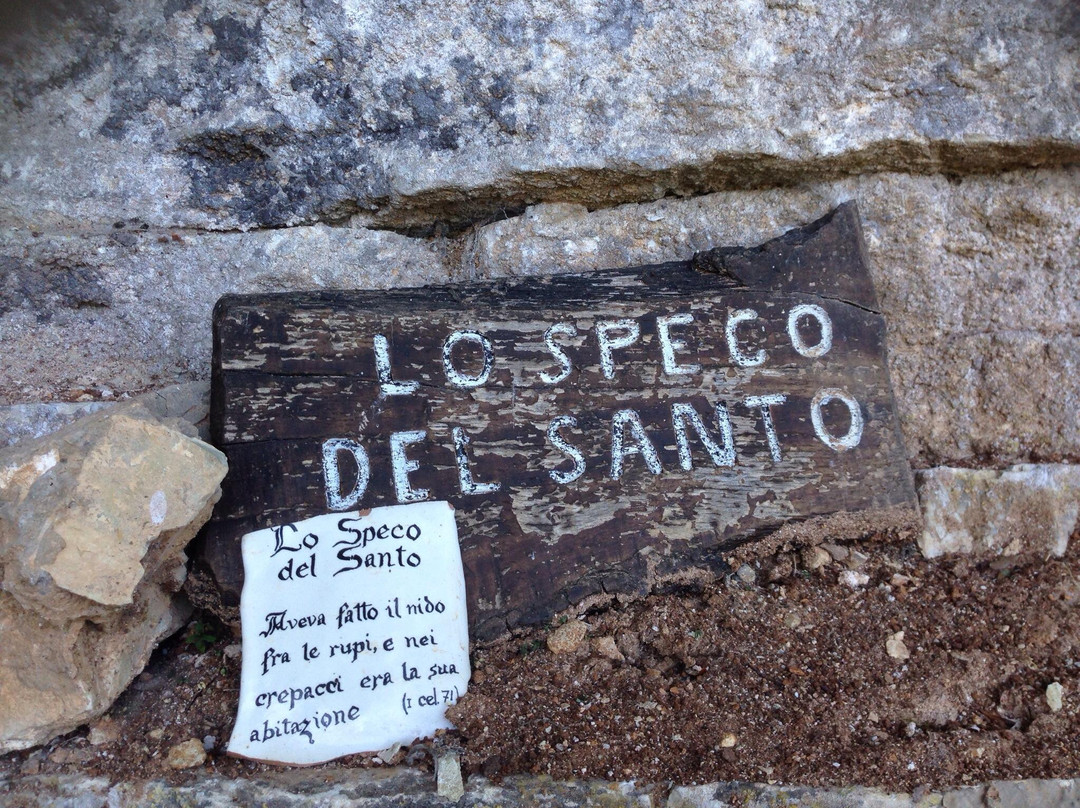 LO SPECO
DEL SANTO
Lo Speco
del Santo
Aveva fatto il nido
fra le rupi, e nei
crepacci era la sua
abitazione (1 cel 71)